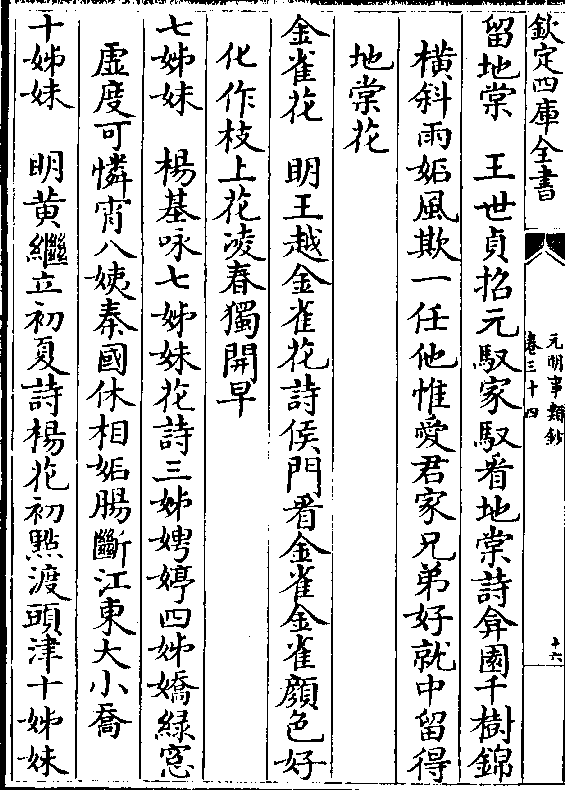 欽定四庫全書
元明事類鈔
卷三十四
十六
留地棠　王世貞招元馭家馭看地棠詩弇園千樹錦
橫斜雨妬風欺一任他惟愛君家兄弟好就中留得
地棠花
金雀花　明王越金雀花詩侯門看金雀金雀顔色好
化作枝上花凌春獨開早
七姊妹　楊基咏七姊妹花詩三姊娉婷四姊嬌緑窓
虚度可憐宵八姨秦國休相妬腸斷江東大小喬
十姊妹　明黃繼立初夏詩楊花初點渡頭津十姊妹